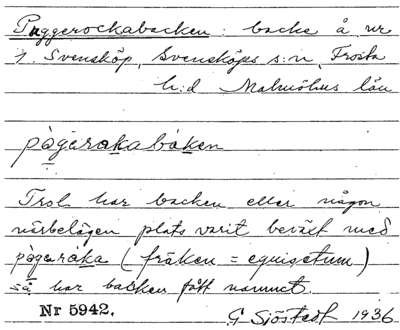 Puggerockabacken: backe å nr
1. Svensköp, Svensköps s:n, Frosta
h:d Malmöhus län
pàgärakabáken
Trol. har backen eller någon
närbelägen plats varit beväxt med
pàgäráka (fräken = equisetum)
så har backen fått namnet.
Nr 5942. G Sjöstedt 1936